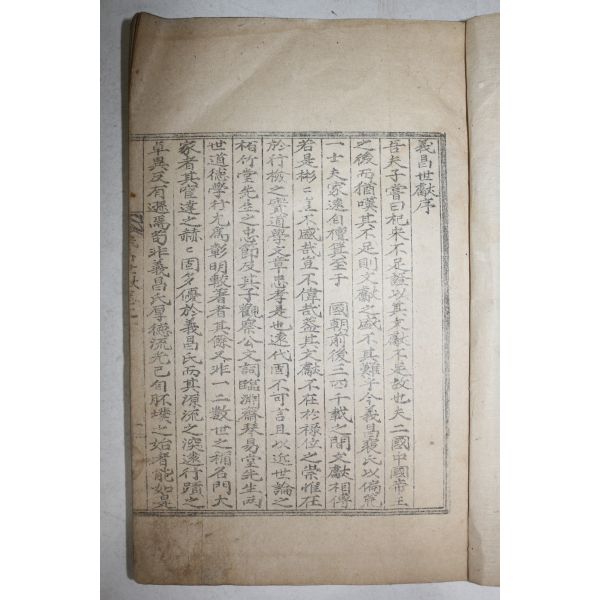 義昌世獻序
昔夫子嘗曰杞宋不足證以其文獻不足故也夫二國中國帝王
之後而猶嘆其不足則文獻之盛不其難乎今義昌裵氏以偏
一士夫家遠自檀箕至于 國朝前後三四千載之間文獻相傳
若是彬〻豈不盛哉豈不偉哉盖其文獻不在於祿位之崇惟在
於行檢之實道學文章忠孝是也遠代固不可言且以近世論之
栢竹堂先生之忠節及其子觀察公文詞臨淵齋琴易堂先生兩
世道德學行尤爲彰明較著者其餘又非一二數世之稱名門大
家者其宦達之赫〻固多優於義昌氏而其源流之深遠行蹟之
卓異反有遜焉苟非義昌氏厚德流光已自胚墣之始者能如是